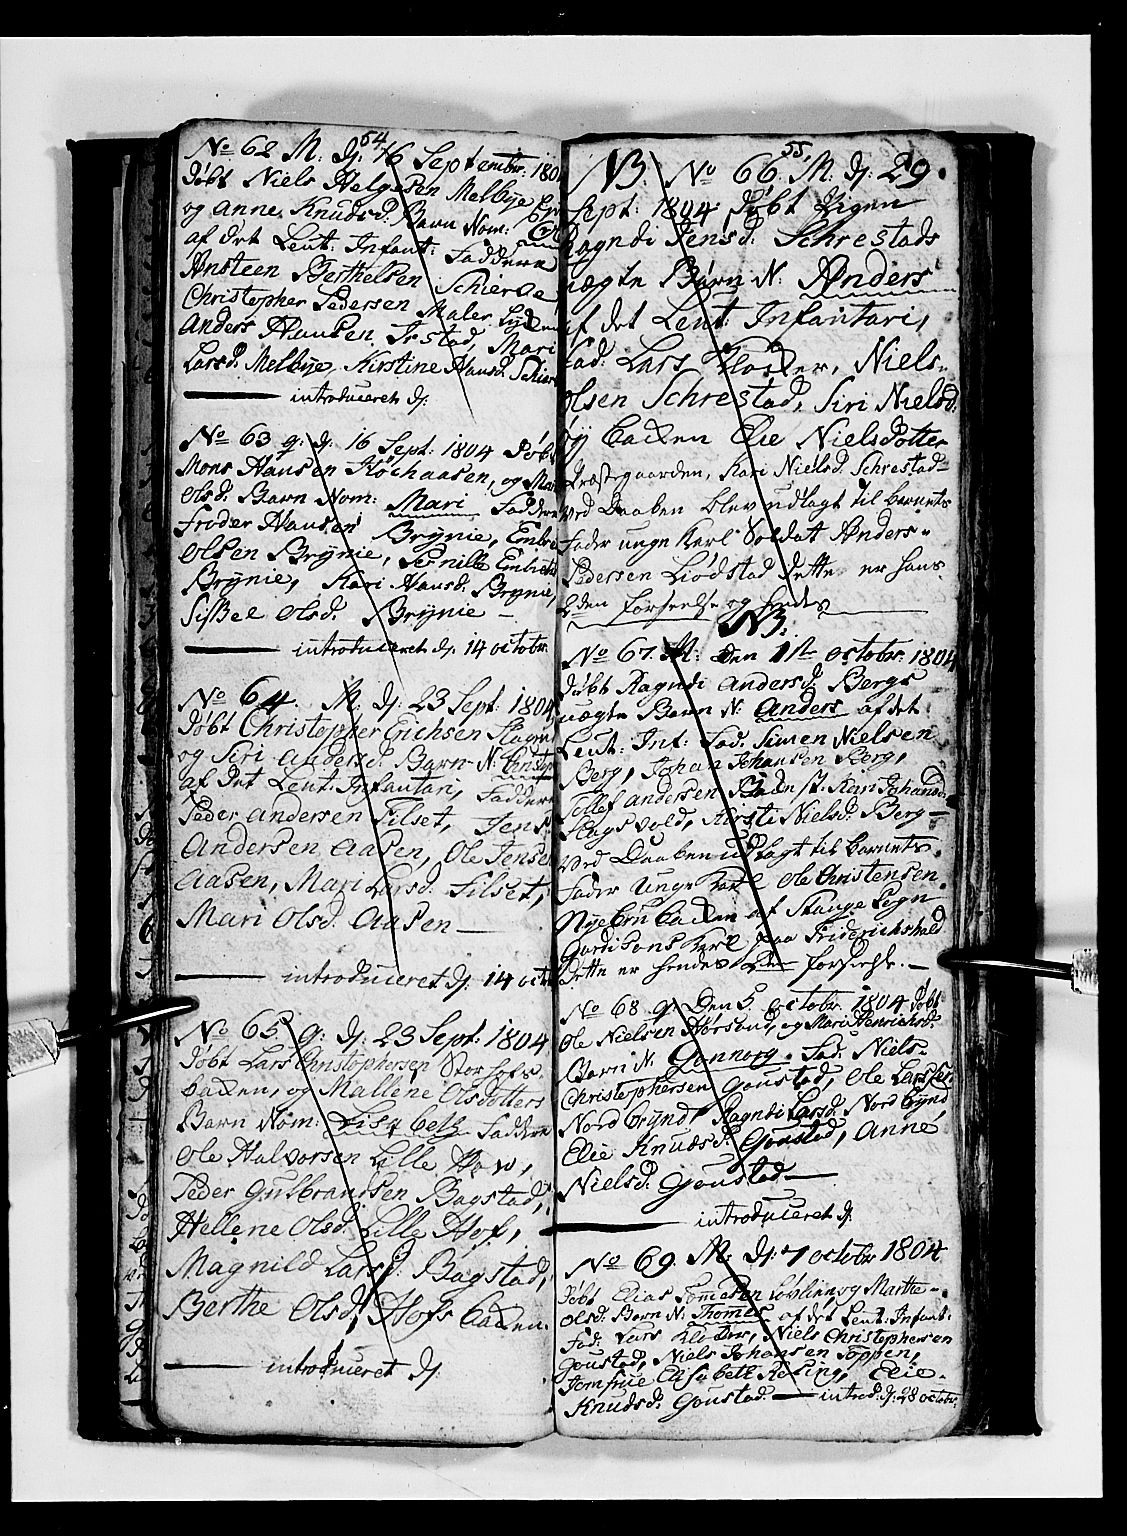 54
No 62 M: dj: 16 September 180
døbt Niels Helgesen Melbye
og Anne Knudsd: Barn Nom:
af det Leut: Infant: Faddere
Ansteen Berthelsen Schierve
Christopher Pedersen Maler
Anders Hansen Irstad, Mari
Larsd: Melbye, Kirstine Hansd:
introduceret dj:
No 63 q: dj: 16 Sept: 1804 Døbt
Mons Hansen Kockaasen, og
Olsd: Barn Nom: Mari Faddere
Froder Hansen Brynie,
Olsen Brynie, Pernille
Brynie, Kari Hansd: Brynie,
Sissel Olsd: Brynie
introduceret dj: 14 octobr
No 64. M. dj: 23 Sept: 1804
Døbt Christopher Erichsen
og Siri Andersd: Barn N:
af det Leut: Infantari, Faddere
Peder Andersen Filset, Jens
Andersen Aasen, Ole Jensen
Aasen, Mari Larsd: Filset,
Mari Olsd: Aasen
introduceret dj: 14
No 65. q: dj: 23 Sept: 1804
Døbt Lars Christophersen Storhofs
backen, og Mallene Olsdotters
Barn Nom: Lisabeth Faddere
Ole Halvorsen Lille How,
Peder Gulbrandsen Bagstad,
Hellene Olsd: Lille Hof,
Magnild Larsd: Bagstad,
Berthe Olsd: Hofs backen.
introduceret dj:
55.
NB. No 66. M. dj: 29.
Sept: 1804. Døbt Pigen
Ragndi Jensd: Schrestads
uægte Barn N: Anders
af det Leut: Infantari,
Fad: Lars Klocker, Niels
Olsen Schrestad, Siri Nielsd:
backen Elie Nielsdotter
Præstegaarden, Kari Nielsd: Schrestad
ved Daaben blev udlagt til barnets
Fader unge Karl Soldat Anders
Pedersen Liødstad dette er hans
forseelse og hendes
NB:
No 67. M: Den 1ste octobr. 1804
døbt Ragndi Andersd: Bergs
uægte Barn N: Anders af det
Leut: Inf: Fad: Simen Nielsen
Berg, Johan Johansen Berg,
Tollef Andersen Kari Johansd:
Slagsvold, Kirsti Nielsd: Berg
ved Daaben udlagt til barnets
Fader Unge Karl Ole Christensen
Nyebrubacken af Stange Pegn
Gardisons Karl paa Friderichshald
Dette er hendes forseelse.
No 68. q. Den 5 octobr. 1804 døbt
Ole Nielsen og Mari Henrichsd:
Barn N. Gonnorg. Fad: Niels
Christophersen Goustad, Ole Larsen
Nordbrynd Ragndi Larsd: Nordbrynd
Elie Knudsd: Goustad, Anne
Nielsd: Goustad
introduceret dj:
No 69. M. dj: 7 octobr 1804
Døbt Elias Tomesen og Marthe
Olsd: Barn N: Thomes af det Leut: Infant:
Fad: Lars Klocker, Niels Christophersen
Goustad, Niels Johansen Toppen,
Jomfrue Elisabeth Resing, Elie
Knudsd: Goustad introd: dj: 28 octobr: